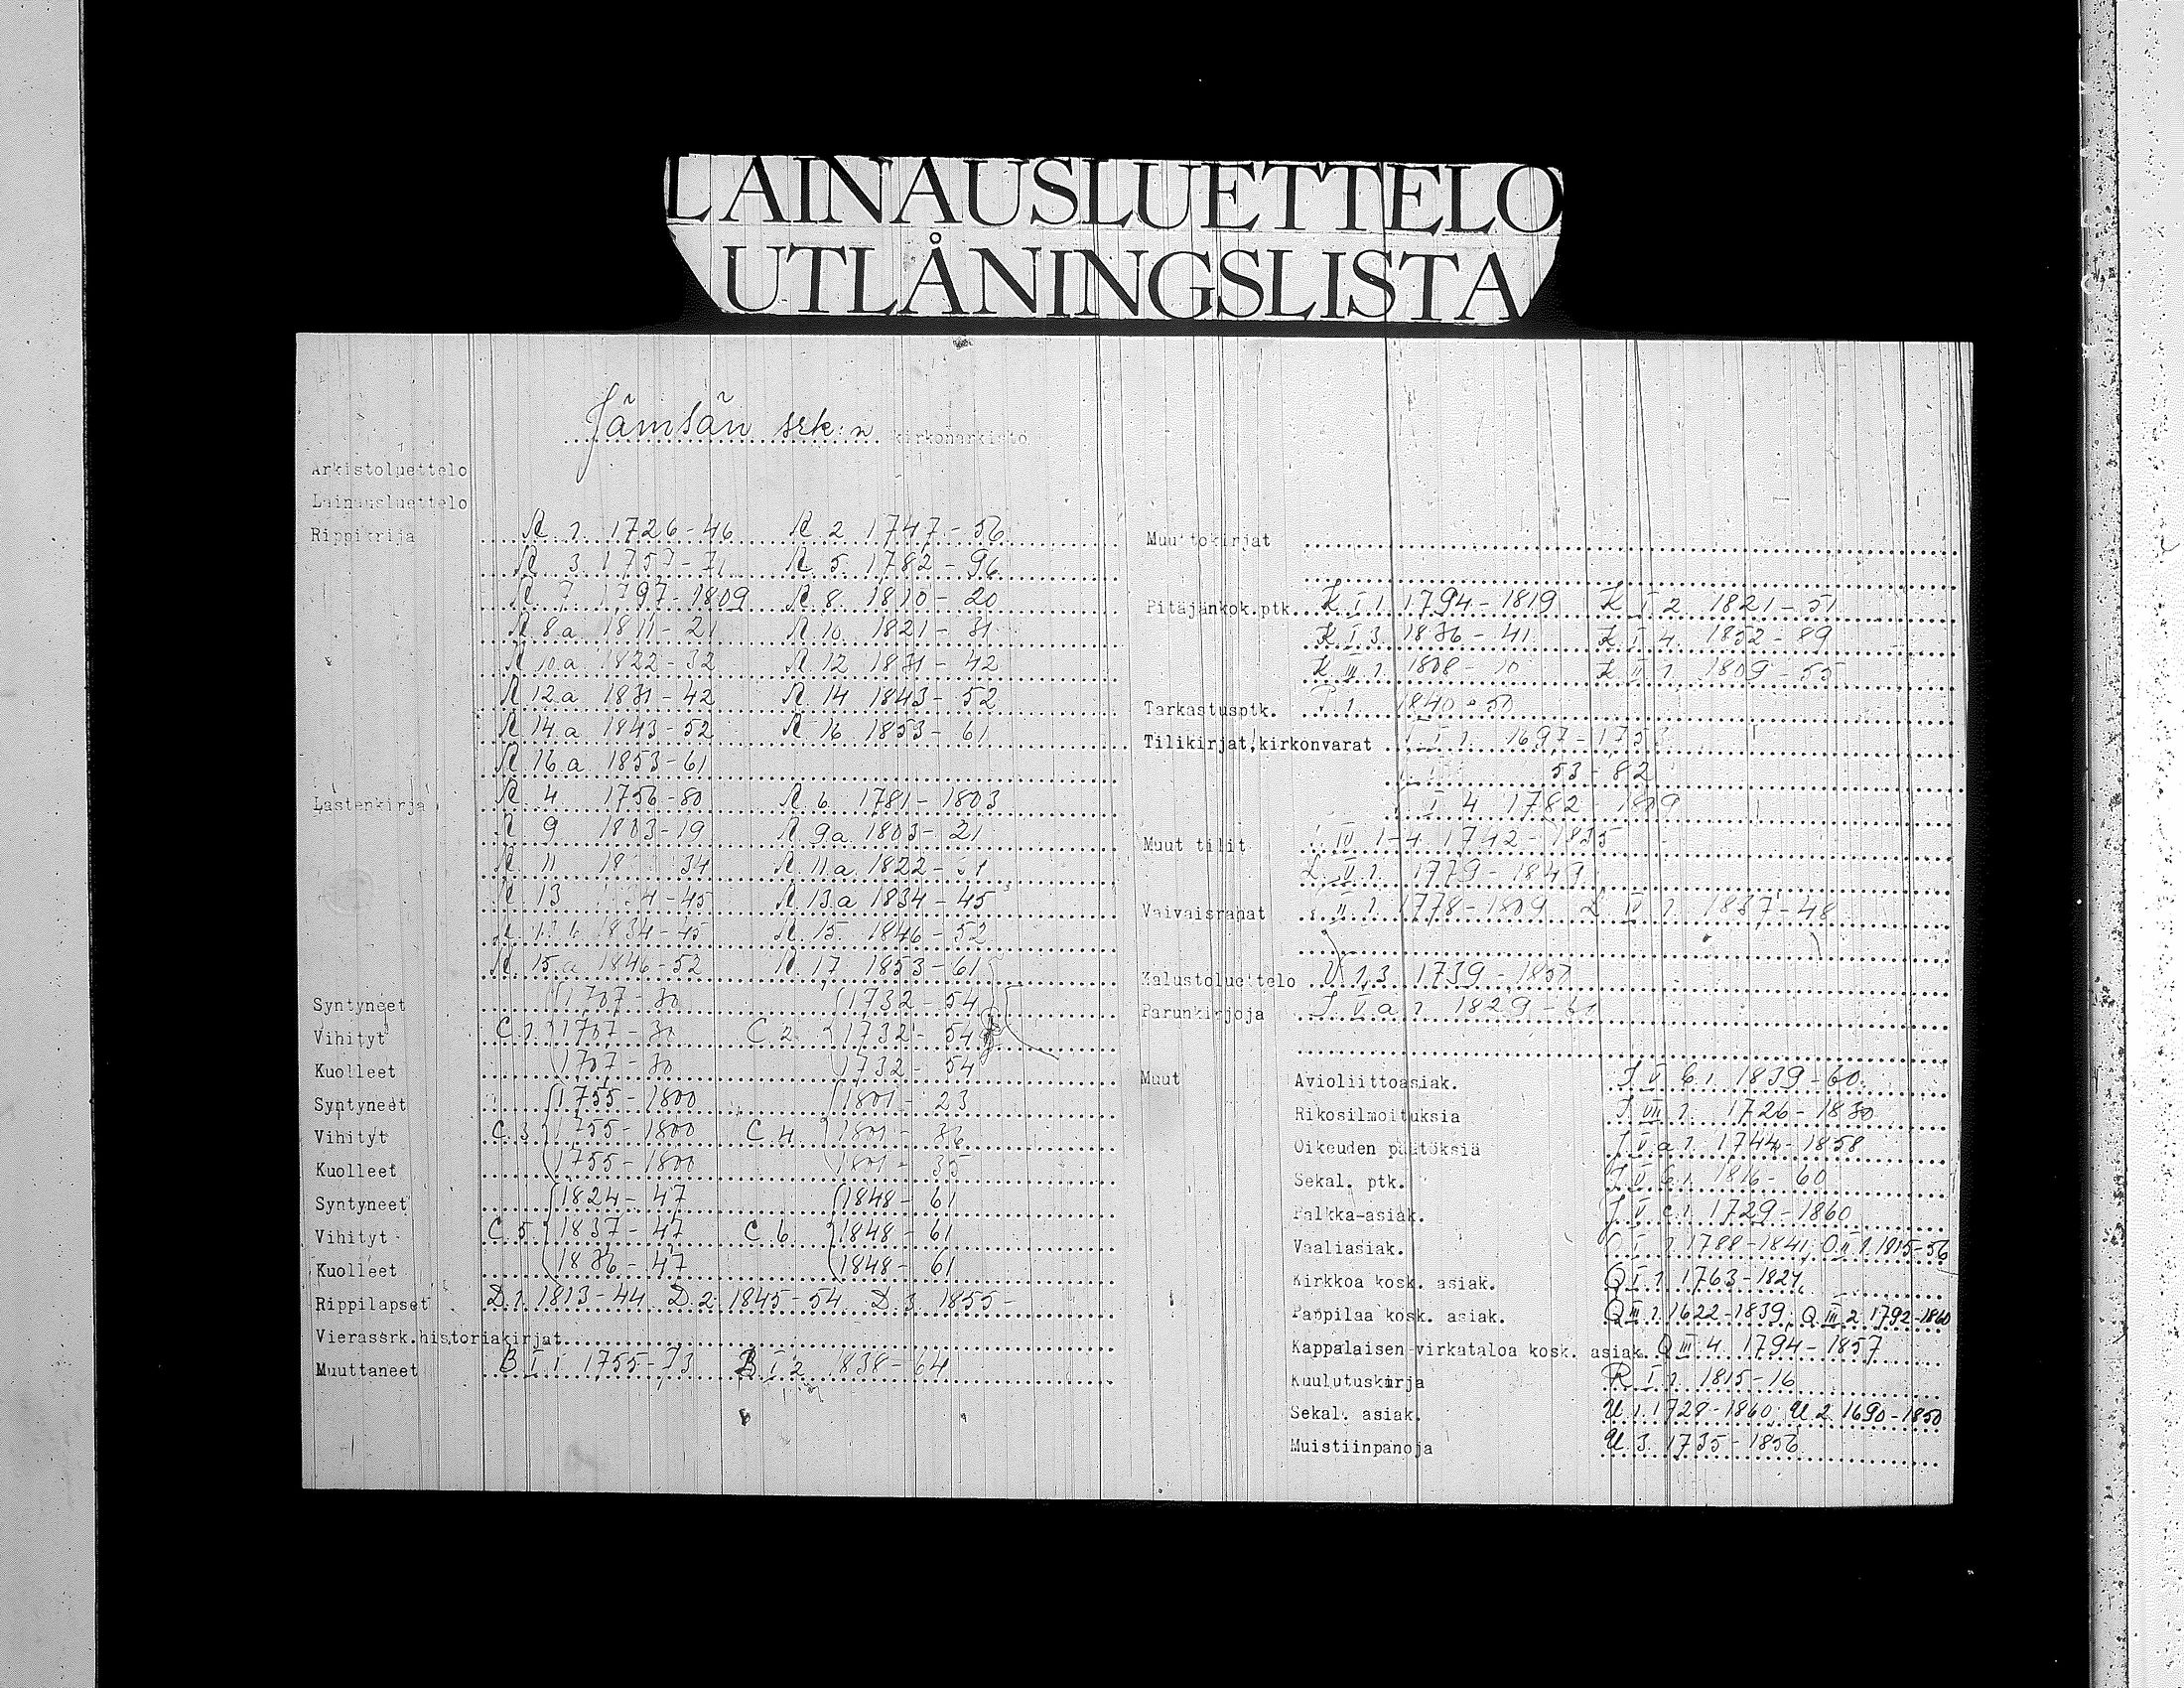 LAINAUSLUETTELO
UTLÅNINGSLISTA
Jämsän srk:n kirkonarkisto
Arkistoluettelo
Lainausluettelo
Rippikrija R 1 1726-46 R 2 1747-56
R 3 1757-71 R 5 1782-96
R 7 1797-1809 R 8 1810-20
R 8a 1811-21 R 10 1821-31
R 10.a 1822-32 R 12 1831-42
R 12a 1831-42 R 14 1843-52
R 14.a 1843-52 R 16 1853-61
R 16.a 1853-61
Lastenkirja R 4 1756-80 R 6 1781-1803
R 9 1803-19 R 9a 1803-21
R 11 18 34 R 11.a 1822-
R 13 34-45 R 13.a 1834-45
R 13 b 1834-45 R 15 1846-52
R 15.a 1846-52 R 17 1853-61
Syntyneet 1707-30 1732-54
Vihityt C 1 1707-30 C 2 1732-54
Kuolleet 1707-30 1732-54
Syntyneet 1755-1800 1801-23
Vihityt C 3 1755-1800 C 4 1801-36
Kuolleet 1755-1800 1801-35
Syntyneet 1824-47 1848-61
Vihityt C 5 1837-47 C 6 1848-61
Kuolleet 1836-47 1848-61
Rippilapset D.1 1813-44 D.2 1845-54 D.3 1855-
Vierassrk.historiakirjat
Muuttaneet B I 1 1755-73 B I 2 1838-64
Muuttokirjat
Pitäjänkok.ptk. K I 1 1794-1819 K I 2 1821-51
K I 3 1836-41 K I 4 1852-89
K III 1 1808-10 K II 1 1809-55
Tarkastusptk. P 1 1840-50
Tilikirjat,kirkonvarat I 1 1697-175
53-82
I 4 1782-1809
Muut tilit IV 1-4 1742-1835
L V 1 1779-1849
Vaivaisrahat II 1 1778-1809 L IV 1 1837-48
Kalustoluettelo U 1,3 1739-1850
Parunkirjoja J V a 1 1829-61
Muut Avioliittoasiak. J V b 1 1839-60
Rikosilmoituksia J VII 1 1726-1830
Oikeuden päätöksiä J V a 1 1744-1858
Sekal. ptk. J V b 1 1816-60
Palkka-asiak. J V c 1 1729-1860
Vaaliasiak. O I 1 1788-1841; O II 1 1815-56
Kirkkoa kosk. asiak. Q I 1 1763-1824
Pappilaa kosk. asiak. Q III 1 1622-1839; Q III 2 1792-1860
Kappalaisen virkataloa kosk. asiak. Q III 4 1794-1857
Kuulutuskirja R I 1 1815-16
Sekal. asiak. U 1 1728-1860; U 2 1690-1850
Muistiinpanoja U 3 1735-1856